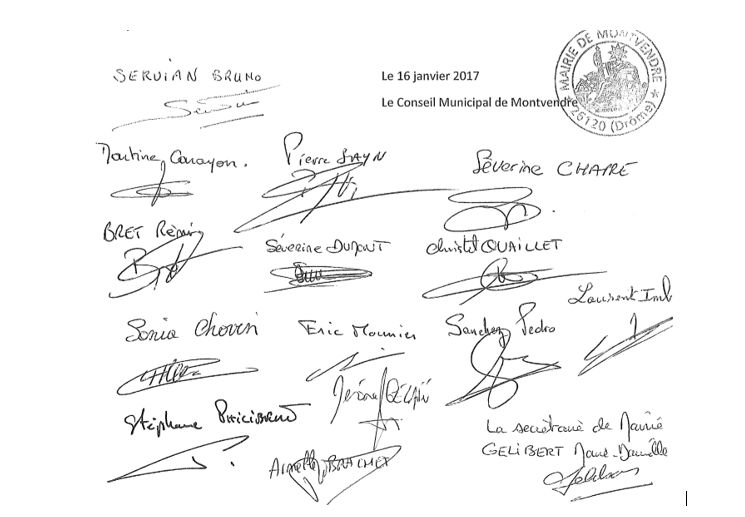 SERVIAN BRUNO
Le 16 janvier 2017
Le Conseil Municipal de Montvendre
MAIRIE DE MONTVENDRE
★ 26120 (Drôme) ★
Martine Carayon.
Pierre SAYN
Séverine CHARRE
BRET Rémy
Séverine DUPONT
Christel QUAILLET
Laurent
Sonia Chovin
Eric Mounier
Sanchez Pedro
Jérôme DELPHI
Stéphane
Armelle BRACHET
La secrétaire de Mairie
GELIBERT